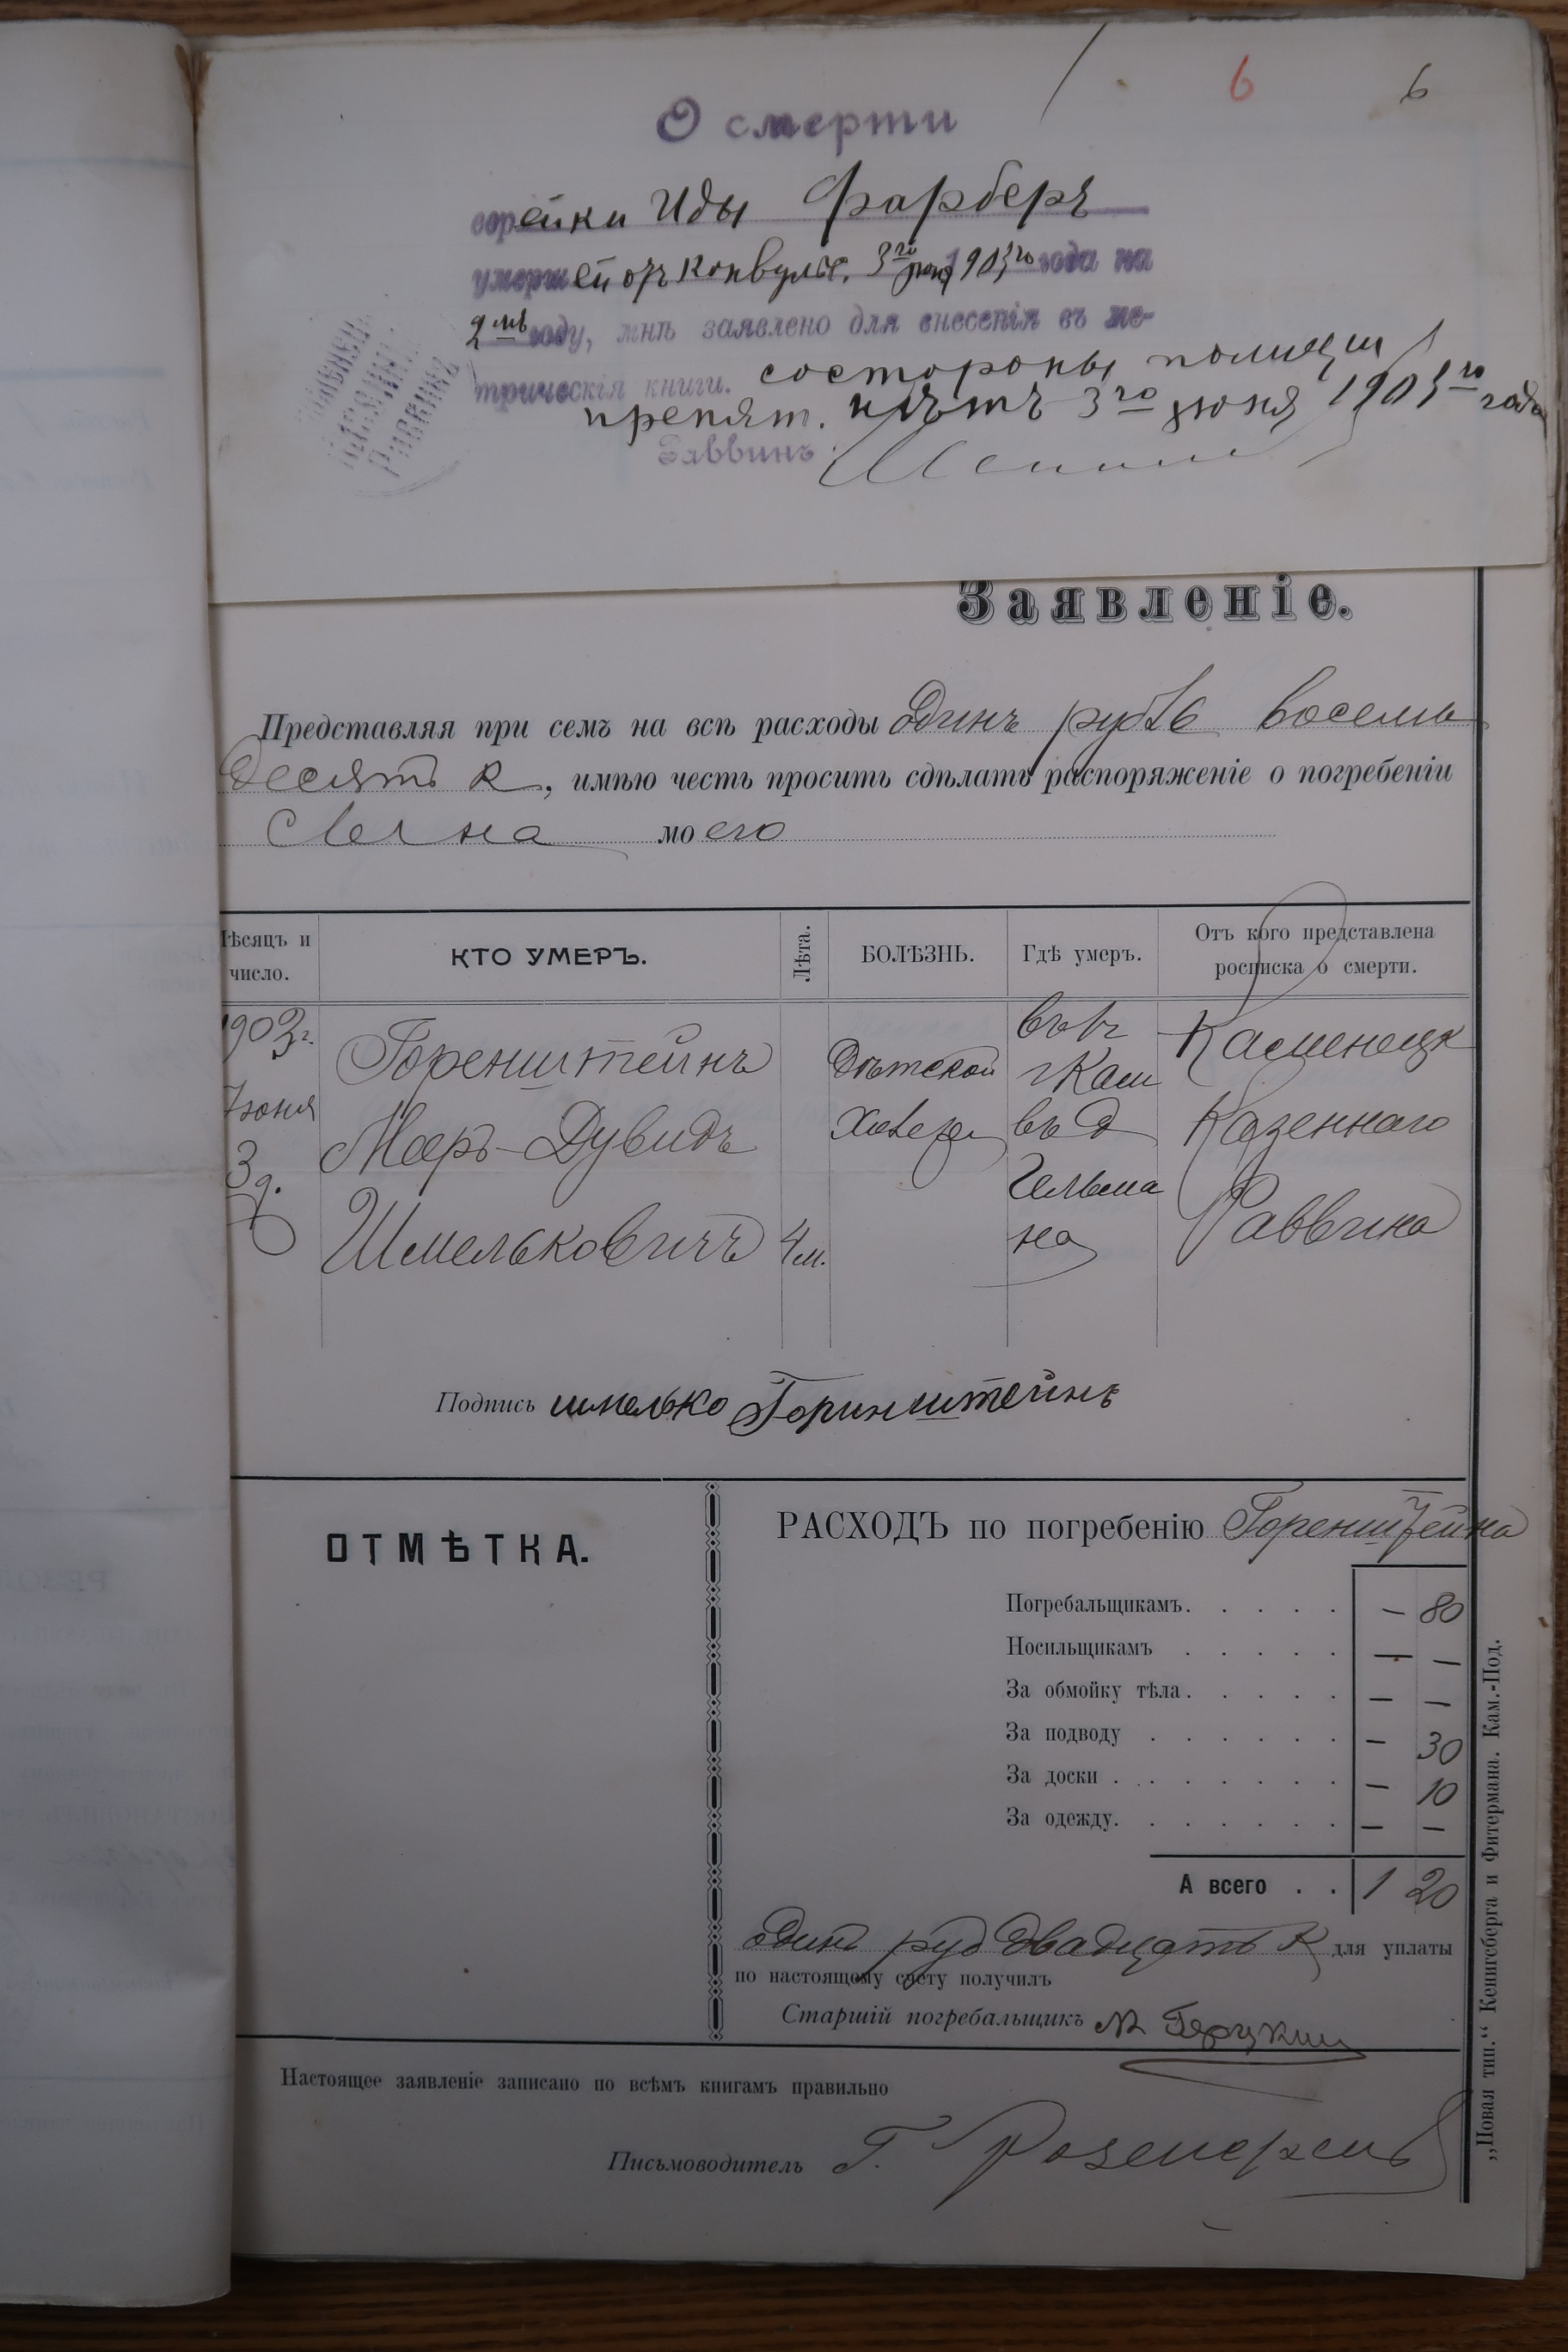 6 6
О смерти
еврейки Иды Фарберъ
умершей отъ конвульс. 3го июня 1903го года на
2мъ году, мнѣ заявлено для внесенія въ ме-
трическія книги. состороны полиции
препят. нѣтъ 3го июня 1903го года
Раввинъ
Заявленіе.
Представляя при семъ на всѣ расходы Одинъ рубль восемь
десятъ к, имѣю честь просить сдѣлать распоряженіе о погребеніи
Сына моего
Мѣсяцъ и число. КТО УМЕРЪ. Лѣта. БОЛѢЗНЬ. Гдѣ умеръ. Отъ кого представлена росписка о смерти.
1903г. Горенштейнъ Дѣтской въ г Кам Каменецк
Июня Мееръ-Дувидъ въ д Казеннаго
3 д. Шмельковичъ 4 м. Гельмана Раввина
Подпись шмелько Горинштейнъ
ОТМѢТКА.
РАСХОДЪ по погребенію Горенштейна
Погребальщикамъ. . . . . — 80
Носильщикамъ . . . . . — —
За обмойку тѣла. . . . . — —
За подводу . . . . . . — 30
За доски . . . . . . . — 10
За одежду. . . . . . . — —
А всего . . 1 20
один руб двадцать к для уплаты
по настоящему счету получилъ
Старшій погребальщикъ
Настоящее заявленіе записано по всѣмъ книгамъ правильно
Письмоводитель Г.
„Новая тип.“ Кенигсберга и Фитермана. Кам.-Под.